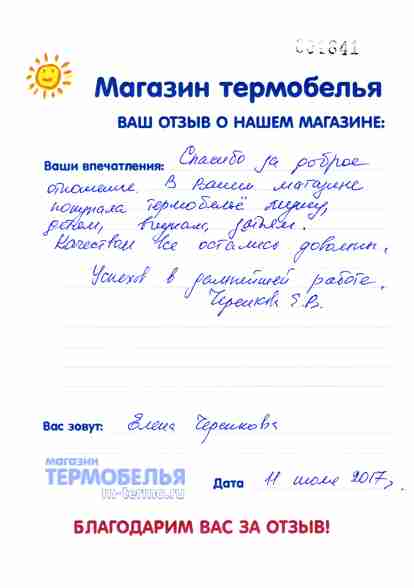 001841
Магазин термобелья
ВАШ ОТЗЫВ О НАШЕМ МАГАЗИНЕ:
Ваши впечатления: Спасибо за доброе
отношение. В Вашем магазине
покупала термобельё мужу,
детям, внукам, зятьям.
Качеством все остались довольны.
Успехов в дальнейшей работе.
Черенкова Е.В.
Вас зовут: Елена Черенкова
магазин
ТЕРМОБЕЛЬЯ
m-termo.ru
Дата 11 июля 2017г.
БЛАГОДАРИМ ВАС ЗА ОТЗЫВ!